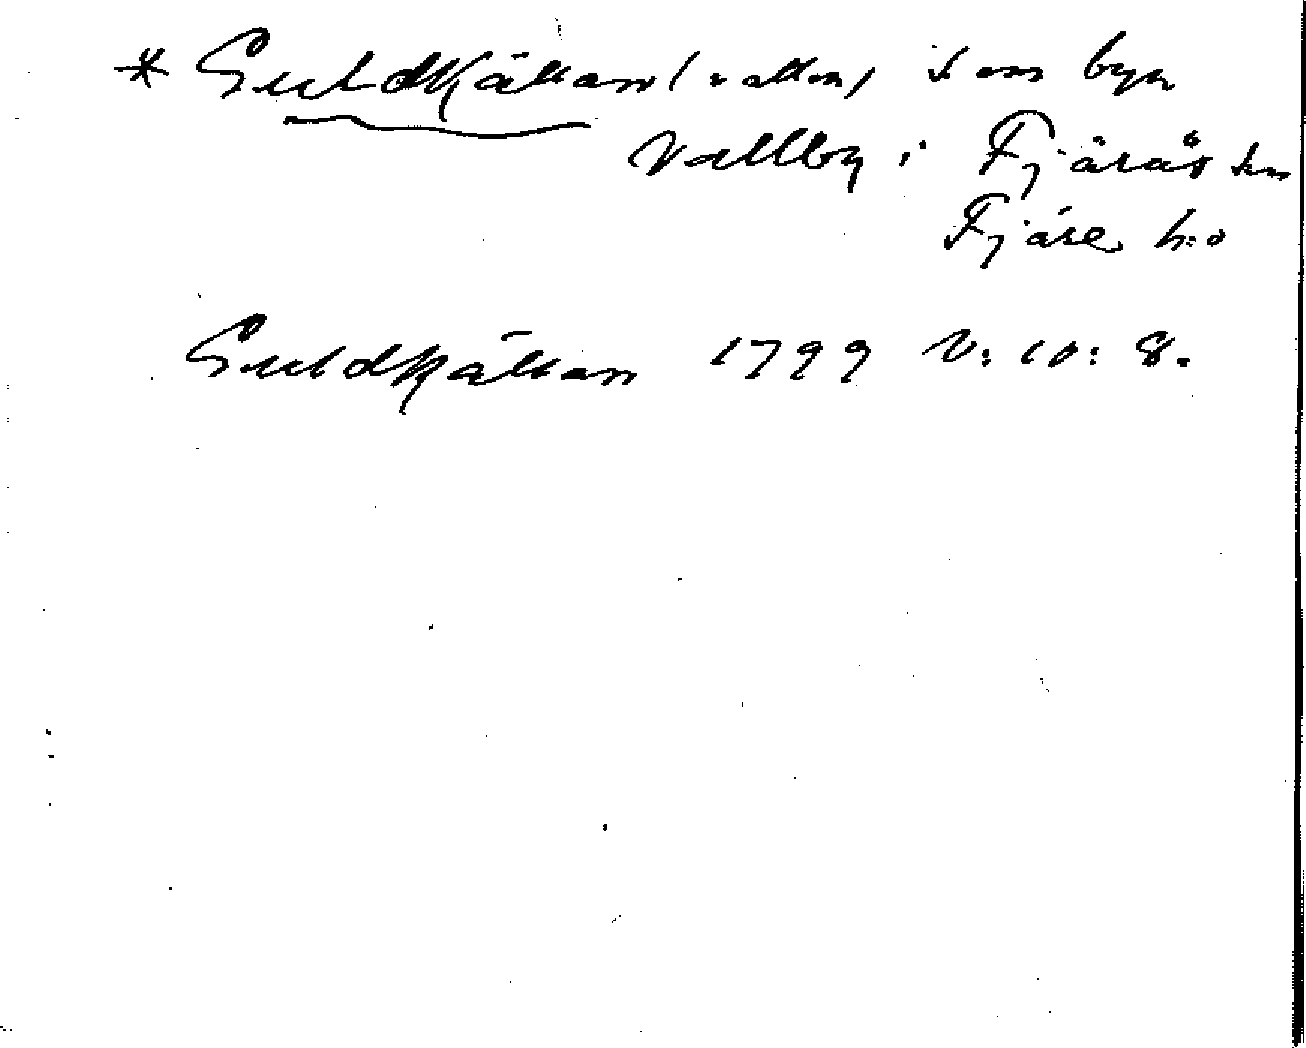 * Guldkällan (vatten) som byn
Vallby i Fjärås sn
Fjäre hd
Guldkällan 1799 V: 10: 8.